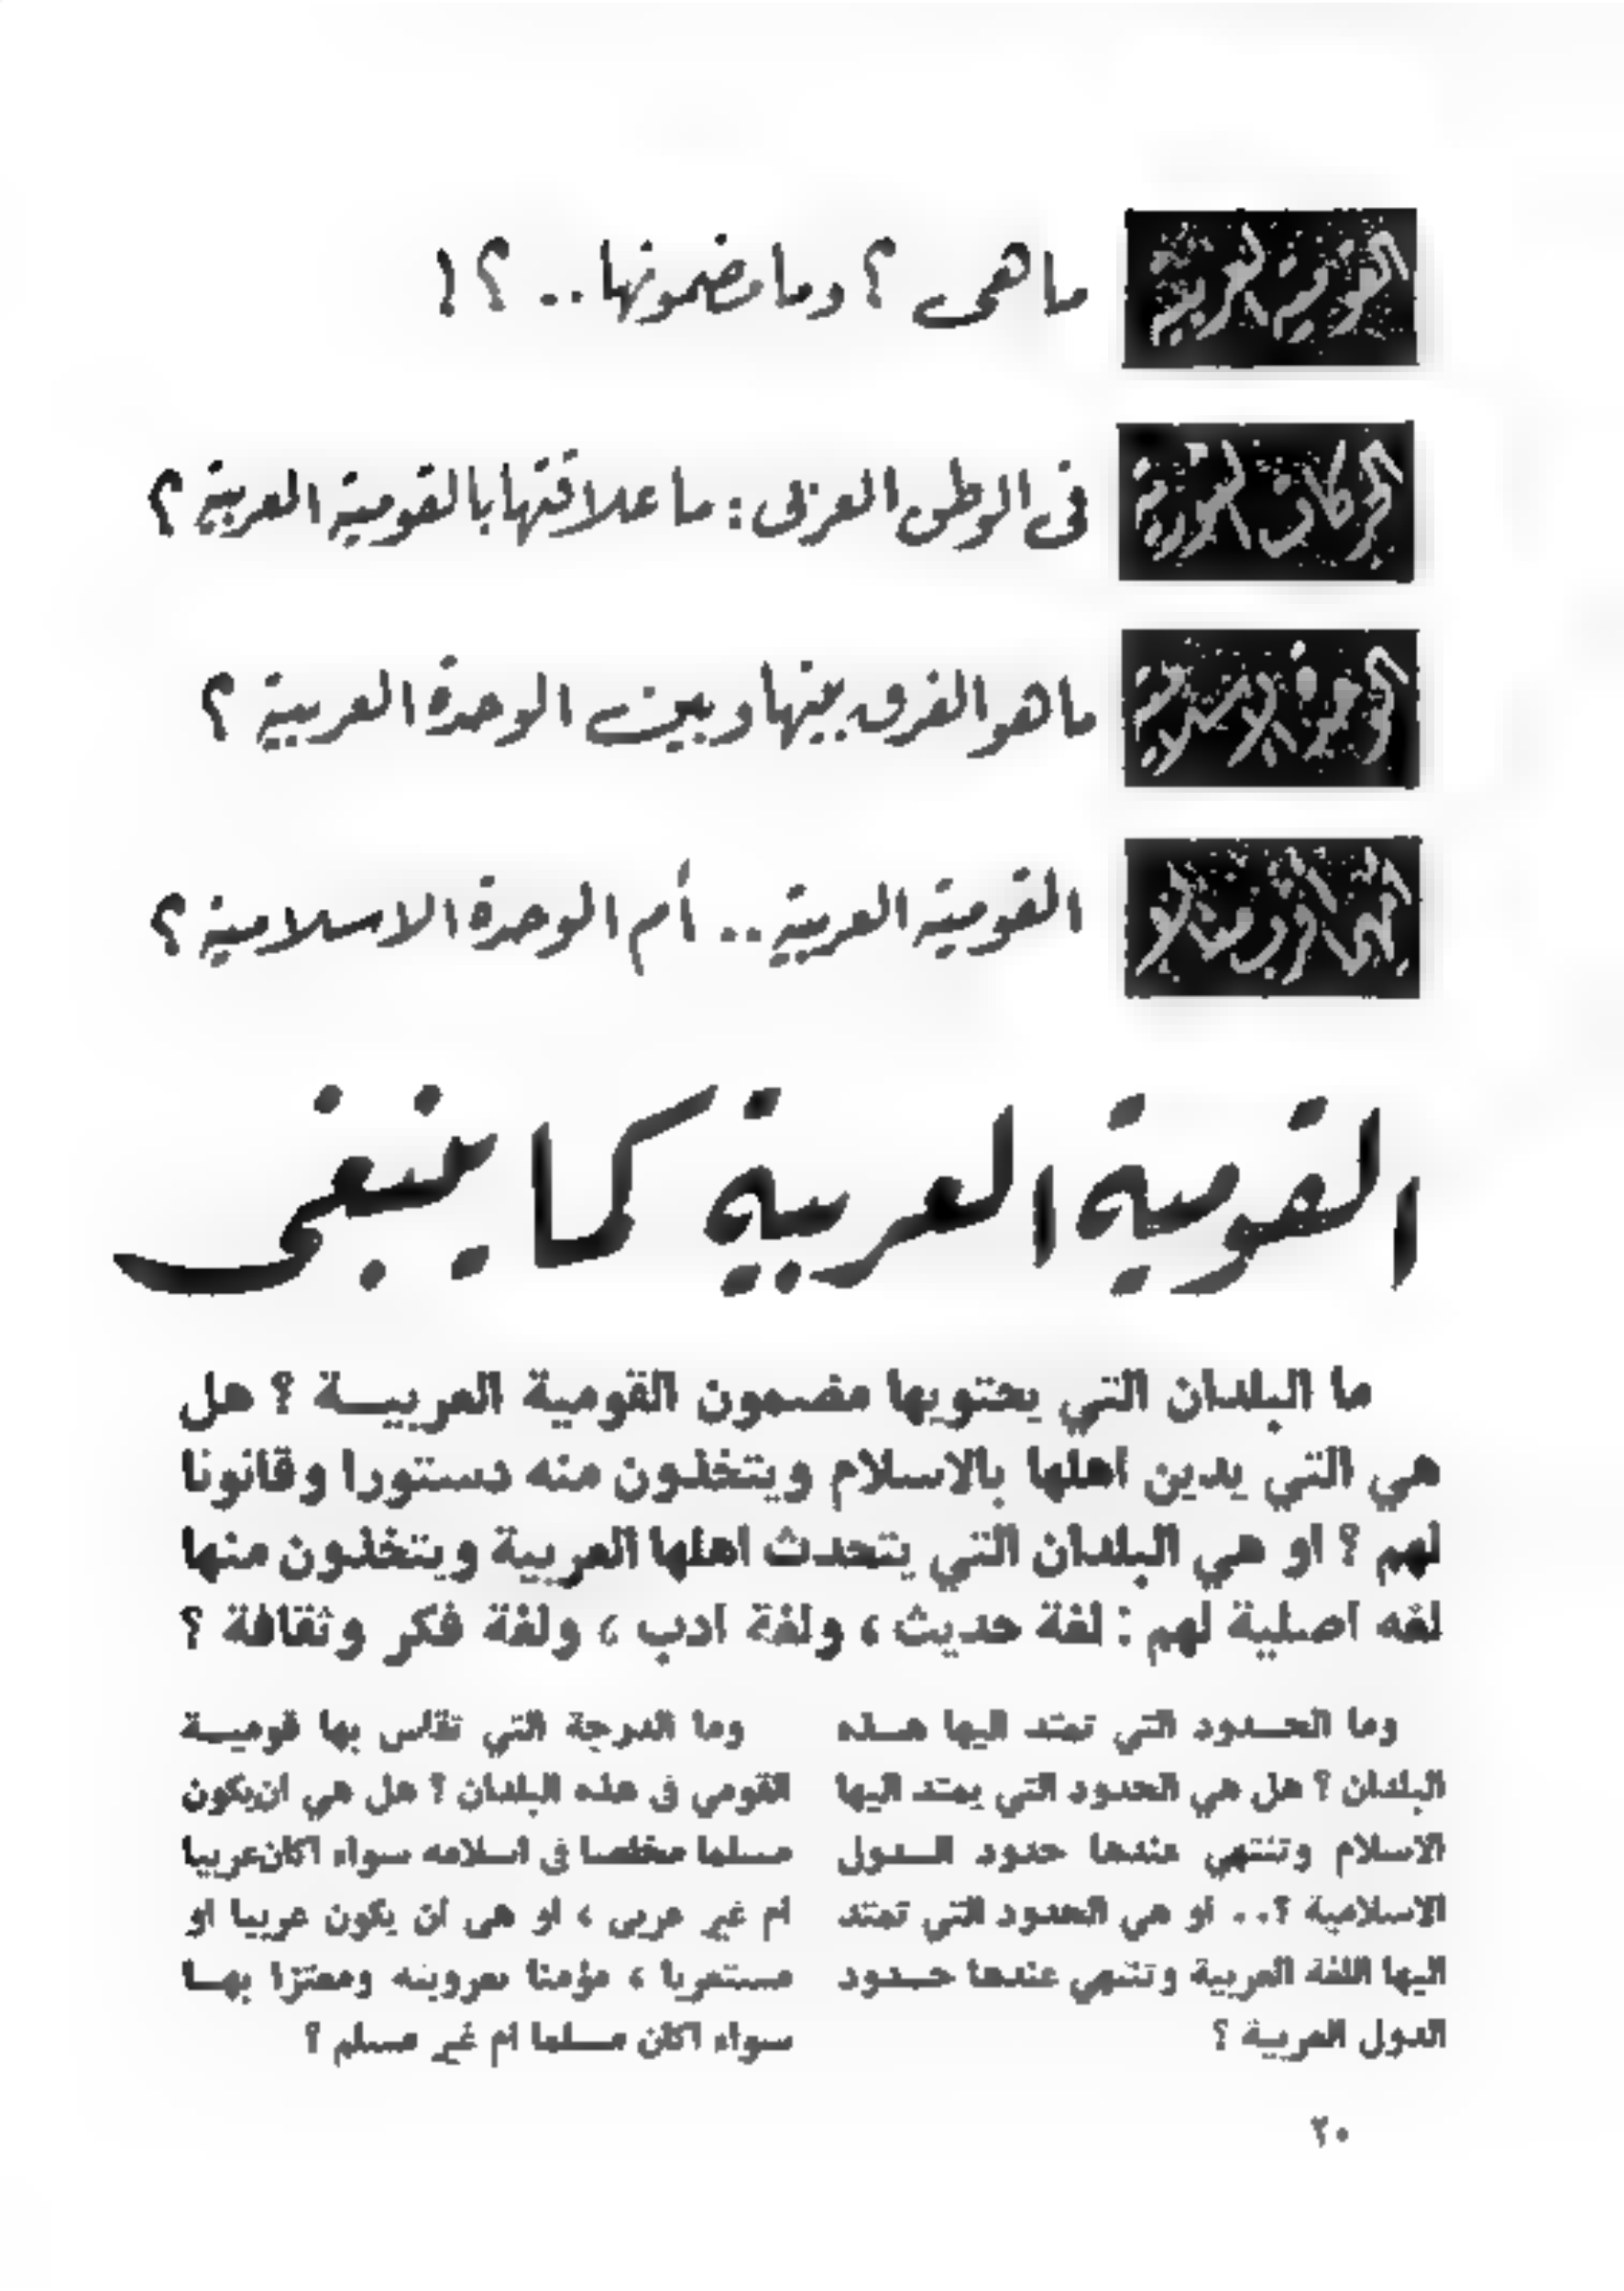 القومية العربية ماهى ؟ وما مضمونها .. ؟ !
الحركات الثورية فى الوطن العربى : ما علاقتها بالقومية العربية ؟
الوحدة الإسلامية ما هو الفرق بينها وبين الوحدة العربية ؟
أيهما أقرب منالا القومية العربية .. أم الوحدة الاسلامية ؟
القومية العربية كما ينبغى
ما البلدان التي يحتويها مضمون القومية العربيـــة ؟ هل
هي التي يدين اهلها بالاسلام ويتخذون منه دستورا وقانونا
لهم ؟ او هي البلدان التي يتحدث اهلها العربية ويتخذون منها
لغه اصلية لهم : لغة حديث ، ولغة ادب ، ولغة فكر وثقافة ؟
وما الحــدود التي تمتد اليها هــذه
البلدان ؟ هل هي الحدود التي يمتد اليها
الاسلام وتنتهي عندها حدود الــدول
الاسلامية ؟.. او هي الحدود التي تمتد
اليها اللغة العربية وتنتهي عندها حــدود
الدول العربية ؟
وما الدرجة التي تقاس بها قوميــة
القومي فى هذه البلدان ؟ هل هي ان يكون
مسلما مخلصا فى اسلامه سواء اكان عربيا
ام غير عربى ، او هى ان يكون عربيا او
مستعربا ، مؤمنا بعروبته ومعتزا بهــا
سواء اكان مسلما ام غير مسلم ؟
٢٠